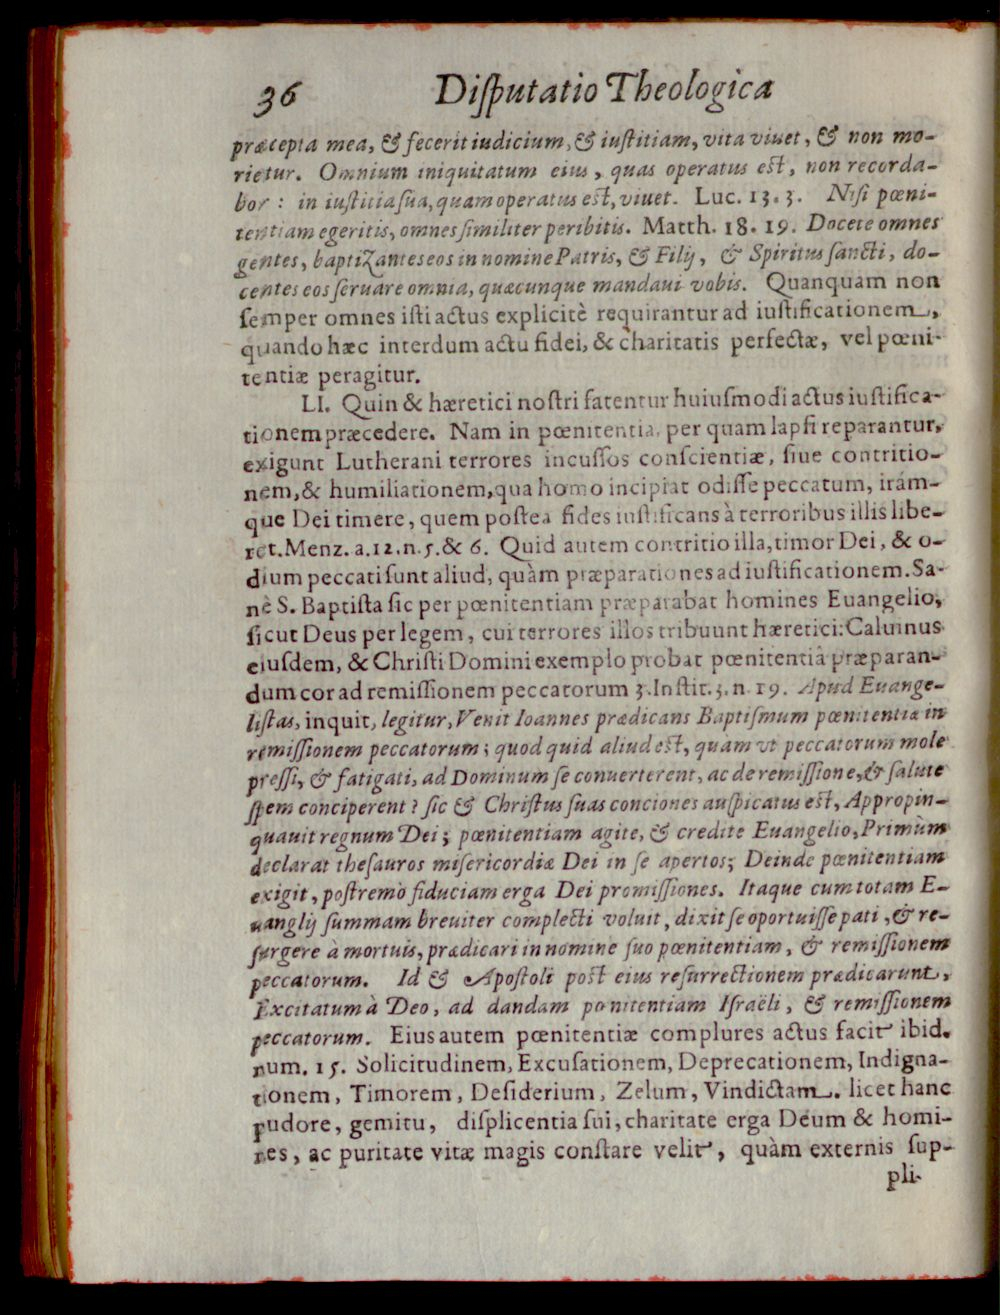 36 Disputatio Theologica
præcepta mea, & fecerit iudicium, & iustitiam, vita viuet, & non mo-
rietur. Omnium iniquitatum eius, quas operatus est, non recorda-
bor: in iustitia sua, quam operatus est, viuet. Luc. 13. 3. Nisi pœni-
tentiam egeritis, omnes similiter peribitis. Matth. 18. 19. Docete omnes
gentes, baptizantes eos in nomine Patris, & Filij, & Spiritus sancti, do-
centes eos seruare omnia, quæcunque mandaui vobis. Quanquam non
semper omnes isti actus explicitè requirantur ad iustificationem,
quando hæc interdum actu fidei, & charitatis perfectæ, vel pœni-
tentiæ peragitur.
LI. Quin & hæretici nostri fatentur huiusmodi actus iustifica-
tionem præcedere. Nam in pœnitentia, per quam lapsi reparantur,
exigunt Lutherani terrores incussos conscientiæ, siue contritio-
nem, & humiliationem, qua homo incipiat odisse peccatum, irám-
que Dei timere, quem postea fides iustificans à terroribus illis libe-
ret. Menz. a. 12. n. 5. & 6. Quid autem contritio illa, timor Dei, & o-
dium peccati sunt aliud, quàm præparationes ad iustificationem. Sa-
nè S. Baptista sic per pœnitentiam præparabat homines Euangelio,
sicut Deus per legem, cui terrores illos tribuunt hæretici: Caluinus
eiusdem, & Christi Domini exemplo probat pœnitentiâ præparan-
dum cor ad remissionem peccatorum 3. Instit. 3. n. 19. Apud Euange-
listas, inquit, legitur, Venit Ioannes prædicans Baptismum pœnitentiæ in
remissionem peccatorum; quod quid aliud est, quam vt peccatorum mole
pressi, & fatigati, ad Dominum se conuerterent, ac de remissione, & salute
spem conciperent? sic & Christus suas conciones auspicatus est, Appropin-
quauit regnum Dei; pœnitentiam agite, & credite Euangelio, Primùm
declarat thesauros misericordiæ Dei in se apertos; Deinde pœnitentiam
exigit, postremò fiduciam erga Dei promissiones. Itaque cum totam E-
uanglij summam breuiter complecti voluit, dixit se oportuisse pati, & re-
surgere à mortuis, prædicari in nomine suo pœnitentiam, & remissionem
peccatorum. Id & Apostoli post eius resurrectionem prædicarunt,
Excitatum à Deo, ad dandam pœnitentiam Israëli, & remissionem
peccatorum. Eius autem pœnitentiæ complures actus facit ibid.
num. 15. Solicitudinem, Excusationem, Deprecationem, Indigna-
tionem, Timorem, Desiderium, Zelum, Vindictam. licet hanc
pudore, gemitu, displicentia sui, charitate erga Deum & homi-
nes, ac puritate vitæ magis constare velit, quàm externis sup-
pli-